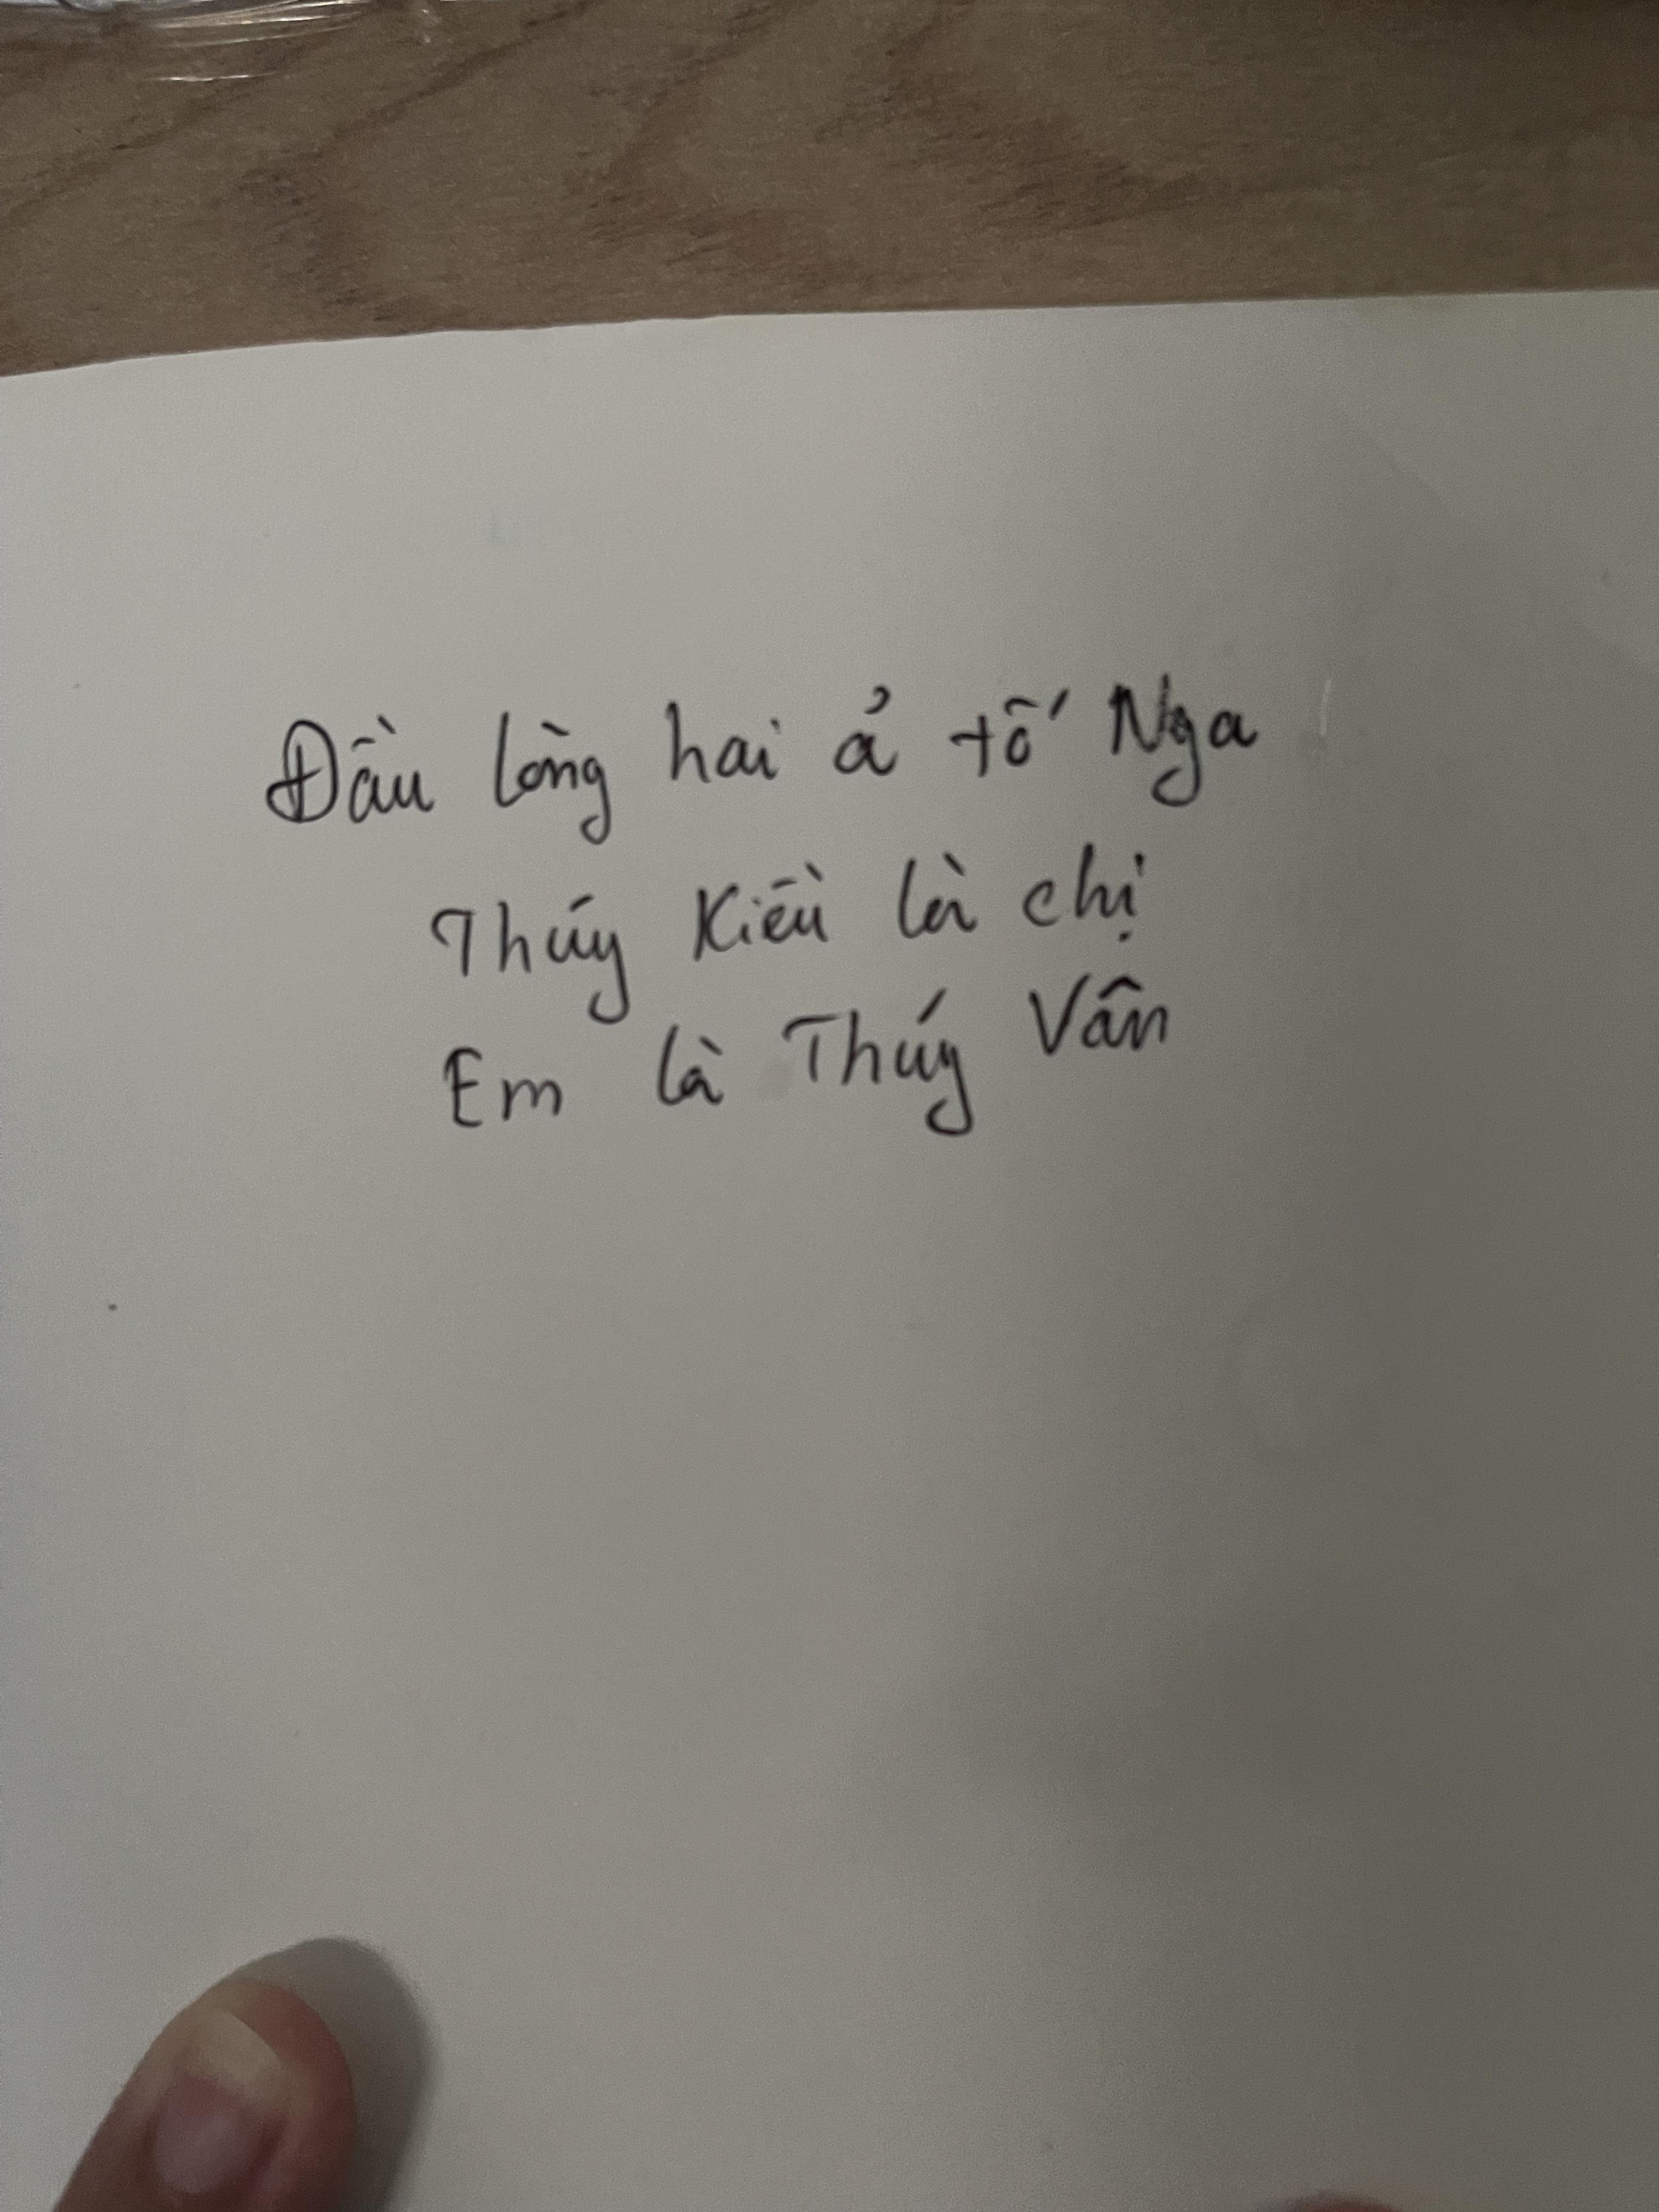 Đầu lòng hai ả tố Nga
Thúy Kiều là chị
Em là Thúy Vân